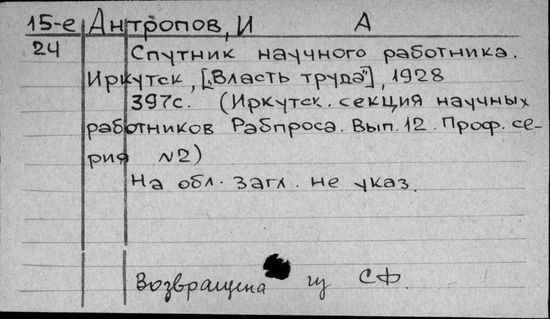 15-е Антропов, И А
24 Спутник научного работника.
Иркутск, ["Власть труда"], 1928
397с. (Иркутск. секция научных
работников Рабпроса. Вып. 12. Проф. се-
рия №2)
На обл. загл. не указ.
Возвращена из СФ.